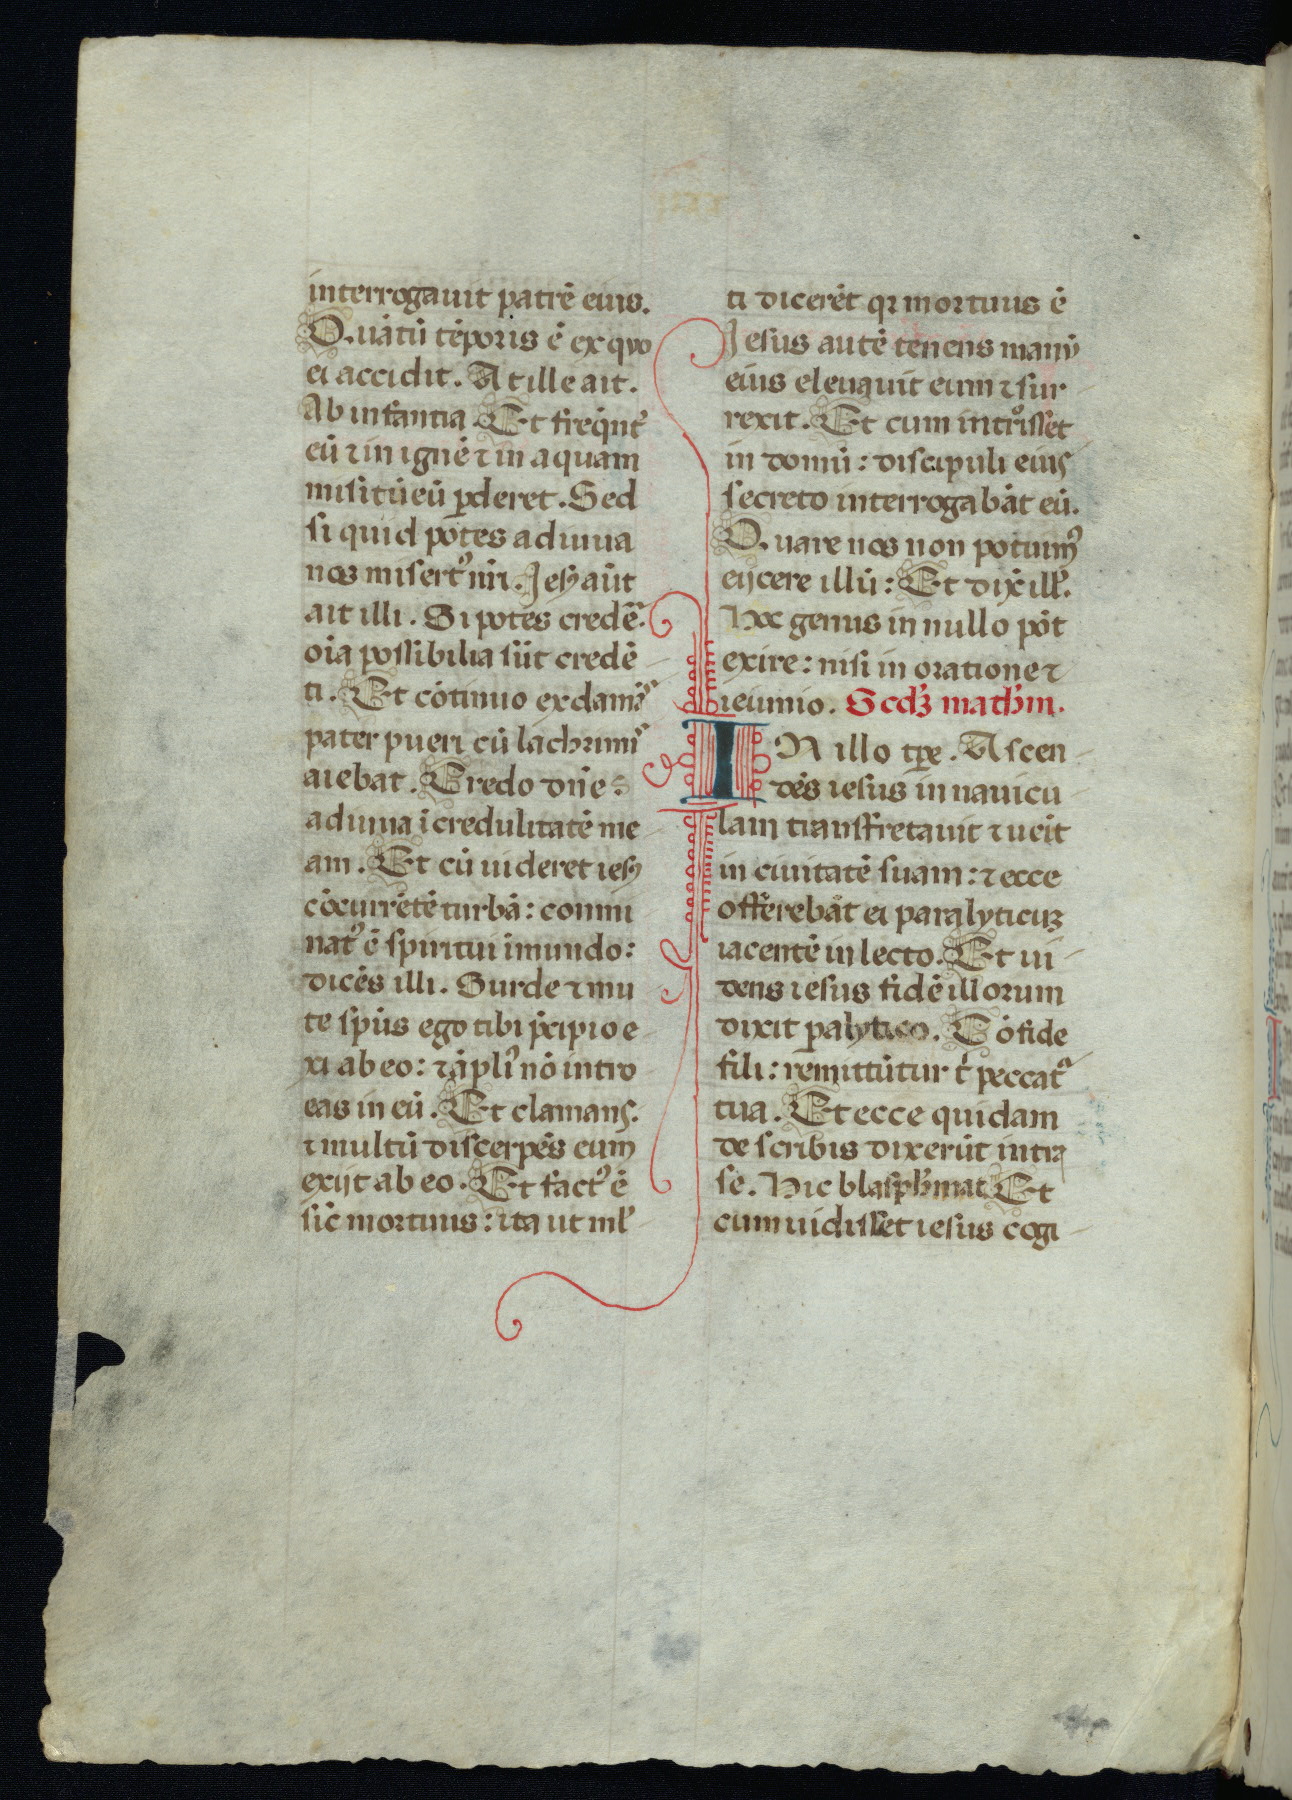 interrogauit patrē eius.
Quātū tēporis ē ex quo
ei accidit. At ille ait.
Ab infantia. Et freq̄nt᷑
eū ⁊ in ignē ⁊ in aquam
misit ū eū ꝑderet. Sed
si quid potes adiuua
nos misert᷒ nr̄i. Jesꝰ aūt
ait illi. Si potes credē:
oīa possibilia sūt credē
ti. Et cōtinuo exclamās
pater pueri cū lachrimis
aiebat. Credo dn̄e:
adiuua īcredulitatē me
am. Et cū uideret iesꝰ
cōcurrētē turbā: commi
natꝰ ē spiritui īmundo:
dicēs illi. Surde ⁊ mu
te sp̄us ego tibi p̄cipio e
xi ab eo: ⁊ āpliꝰ nō intro
eas in eū. Et clamans.
⁊ multū discerpēs eum
exijt ab eo. Et factꝰ ē
sic mortuus: ita ut ml᷑
ti dicerēt qꝛ mortuus ē
Jesus autē tenens manū
eius eleuauit eum ⁊ sur
rexit. Et cum introisset
in domū: discipuli eius
secreto interrogabāt eū.
Quare nos non potuimꝰ
eijcere illū: Et dix̄ ill᷑.
Hoc genus in nullo pōt
exire: nisi in oratione ⁊
ieiunio. Scdꝫ math̄m.
IN illo tp̄e. Ascen
dēs iesus in nauicu
lam transfretauit ⁊ uēit
in ciuitatē suam: ⁊ ecce
offerebāt ei paralyticuꝫ
iacentē in lecto. Et ui
dens iesus fidē illorum
dixit palytico. Cōfide
fili: remittūtur t̄ peccat᷑
tua. Et ecce quidam
de scribis dixerūt intra
se. Hic blasph̄mat. Et
cum uidisset iesus cogi